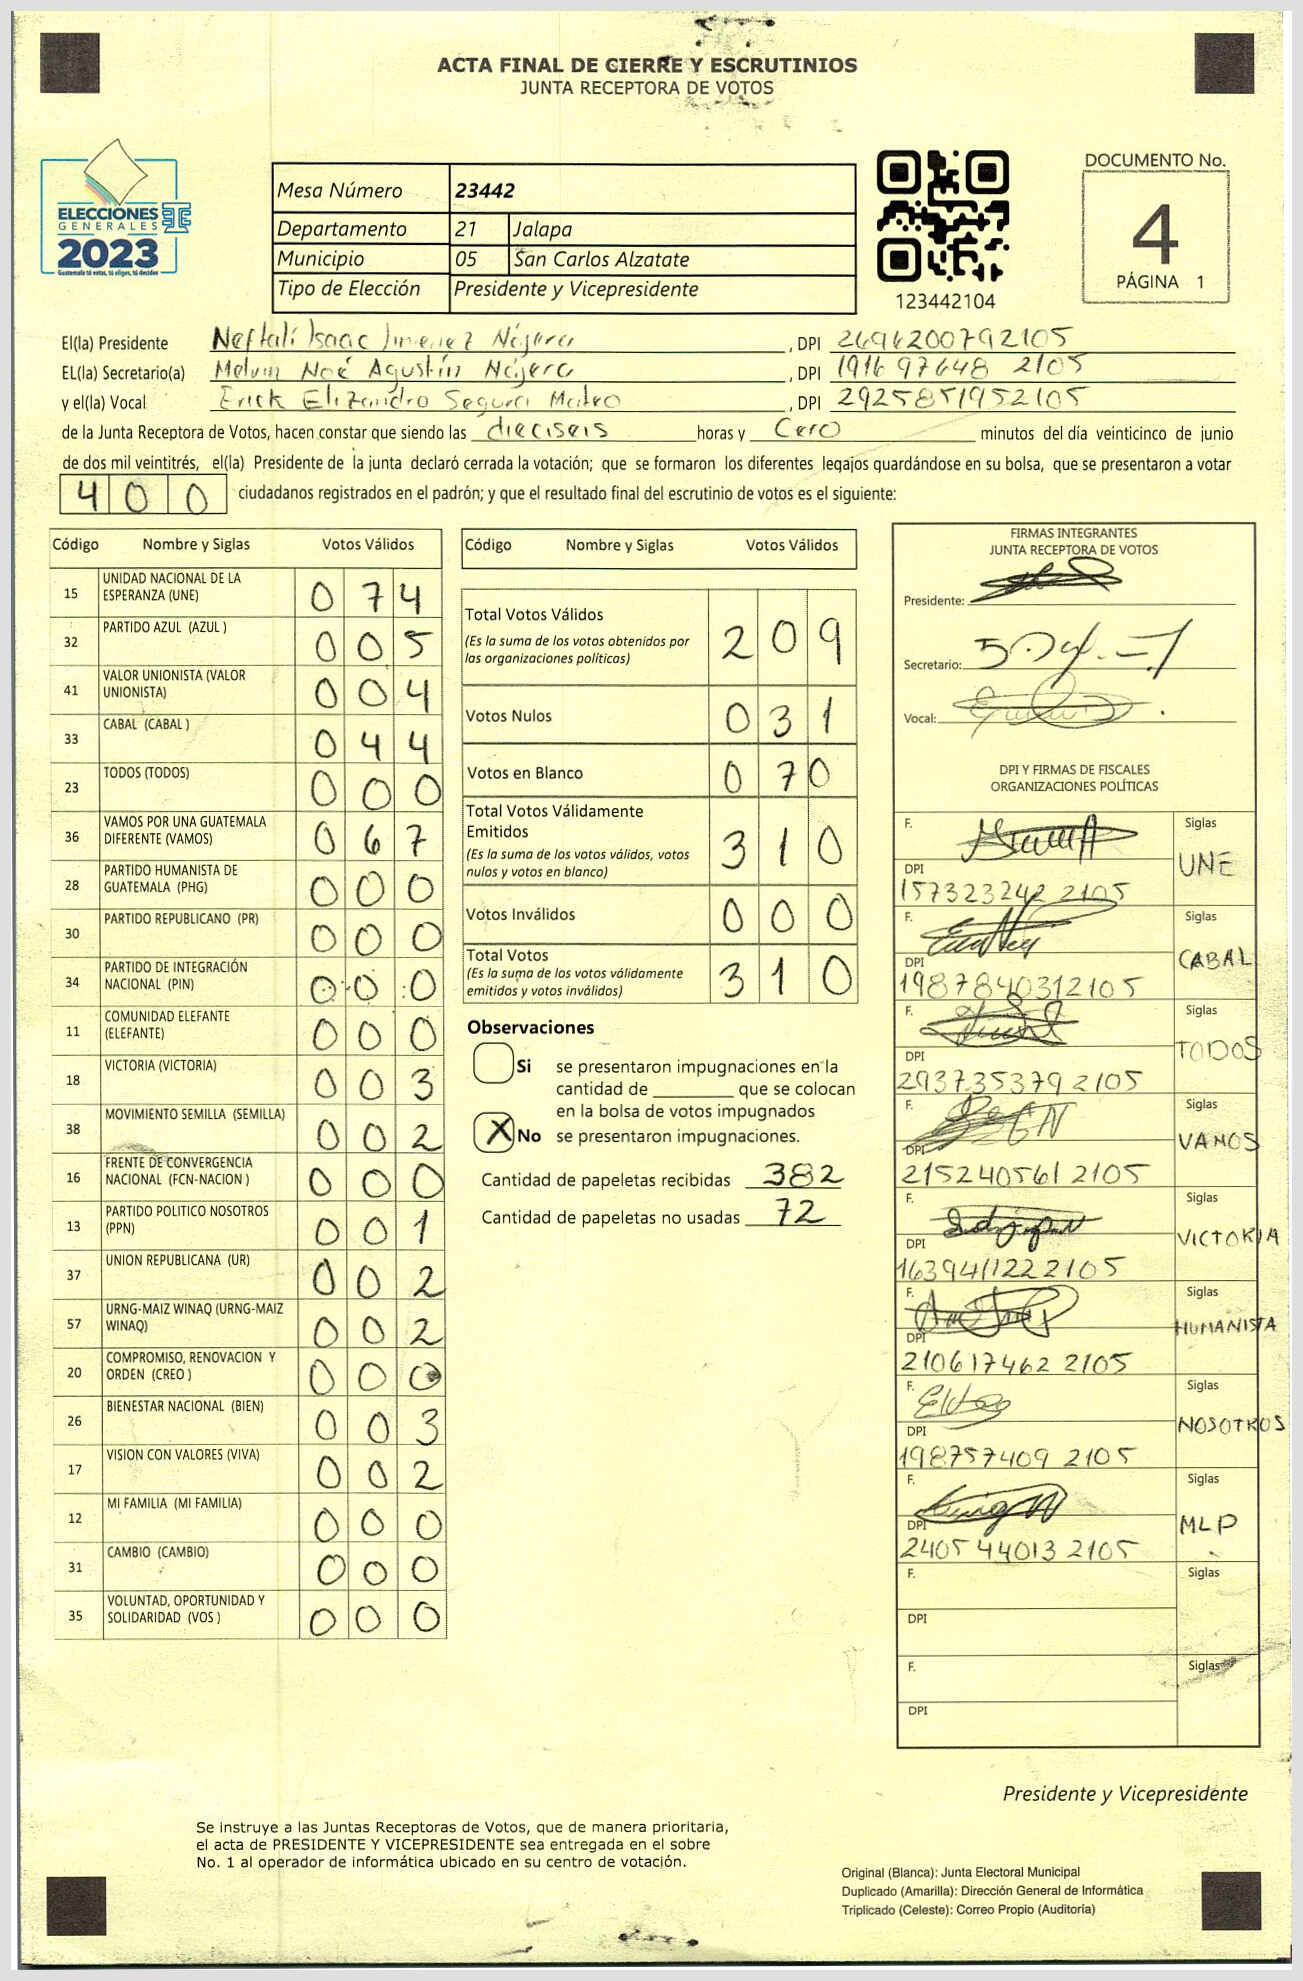 ACTA FINAL DE CIERRE Y ESCRUTINIOS
JUNTA RECEPTORA DE VOTOS
ELECCIONES
GENERALES
2023
Guatemala tú votas, tú eliges, tú decides
Mesa Número 23442
Departamento 21 Jalapa
Municipio 05 San Carlos Alzatate
Tipo de Elección Presidente y Vicepresidente
123442104
DOCUMENTO No.
4
PÁGINA 1
El(la) Presidente Neftali Isaac Jimenez Nájera , DPI 2694200792105
EL(la) Secretario(a) Melvin Noé Agustín Nájera , DPI 1916 97648 2105
y el(la) Vocal Erick Elizandro Segura Mateo , DPI 2925851952105
de la Junta Receptora de Votos, hacen constar que siendo las dieciseis horas y Cero minutos del día veinticinco de junio
de dos mil veintitrés, el(la) Presidente de la junta declaró cerrada la votación; que se formaron los diferentes legajos guardándose en su bolsa, que se presentaron a votar
400 ciudadanos registrados en el padrón; y que el resultado final del escrutinio de votos es el siguiente:
Código Nombre y Siglas Votos Válidos
15 UNIDAD NACIONAL DE LA ESPERANZA (UNE) 074
32 PARTIDO AZUL (AZUL ) 005
41 VALOR UNIONISTA (VALOR UNIONISTA) 004
33 CABAL (CABAL ) 044
23 TODOS (TODOS) 000
36 VAMOS POR UNA GUATEMALA DIFERENTE (VAMOS) 067
28 PARTIDO HUMANISTA DE GUATEMALA (PHG) 000
30 PARTIDO REPUBLICANO (PR) 000
34 PARTIDO DE INTEGRACIÓN NACIONAL (PIN) 000
11 COMUNIDAD ELEFANTE (ELEFANTE) 000
18 VICTORIA (VICTORIA) 003
38 MOVIMIENTO SEMILLA (SEMILLA) 002
16 FRENTE DE CONVERGENCIA NACIONAL (FCN-NACION ) 000
13 PARTIDO POLITICO NOSOTROS (PPN) 001
37 UNION REPUBLICANA (UR) 002
57 URNG-MAIZ WINAQ (URNG-MAIZ WINAQ) 002
20 COMPROMISO, RENOVACION Y ORDEN (CREO ) 000
26 BIENESTAR NACIONAL (BIEN) 003
17 VISION CON VALORES (VIVA) 002
12 MI FAMILIA (MI FAMILIA) 000
31 CAMBIO (CAMBIO) 000
35 VOLUNTAD, OPORTUNIDAD Y SOLIDARIDAD (VOS ) 000
Código Nombre y Siglas Votos Válidos
Total Votos Válidos 209
(Es la suma de los votos obtenidos por
las organizaciones políticas)
Votos Nulos 031
Votos en Blanco 070
Total Votos Válidamente
Emitidos 310
(Es la suma de los votos válidos, votos
nulos y votos en blanco)
Votos Inválidos 000
Total Votos 310
(Es la suma de los votos válidamente
emitidos y votos inválidos)
Observaciones
Si se presentaron impugnaciones en la
cantidad de ________ que se colocan
en la bolsa de votos impugnados
X No se presentaron impugnaciones.
Cantidad de papeletas recibidas 382
Cantidad de papeletas no usadas 72
FIRMAS INTEGRANTES
JUNTA RECEPTORA DE VOTOS
Presidente:
Secretario:
Vocal:
DPI Y FIRMAS DE FISCALES
ORGANIZACIONES POLÍTICAS
F. Siglas UNE
DPI 157323242 2105
F. Siglas CABAL
DPI 1987840312105
F. Siglas TODOS
DPI 293735379 2105
F. Siglas VAMOS
DPI 215240561 2105
F. Siglas VICTORIA
DPI 163941122 2105
F. Siglas HUMANISTA
DPI 210617462 2105
F. Siglas NOSOTROS
DPI 198757409 2105
F. Siglas MLP
DPI 2405 44013 2105
F. Siglas
DPI
F. Siglas
DPI
Presidente y Vicepresidente
Se instruye a las Juntas Receptoras de Votos, que de manera prioritaria,
el acta de PRESIDENTE Y VICEPRESIDENTE sea entregada en el sobre
No. 1 al operador de informática ubicado en su centro de votación.
Original (Blanca): Junta Electoral Municipal
Duplicado (Amarilla): Dirección General de Informática
Triplicado (Celeste): Correo Propio (Auditoría)